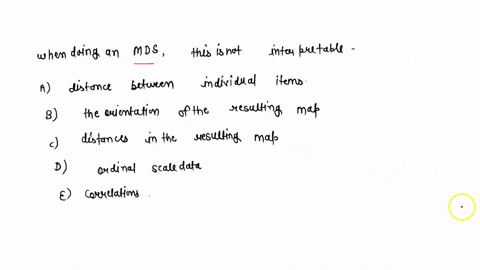 when doing an MDS, this is not interpretable -
A) distance between individual items.
B) the orientation of the resulting map
C) distances in the resulting map
D) ordinal scale data
E) Correlations.